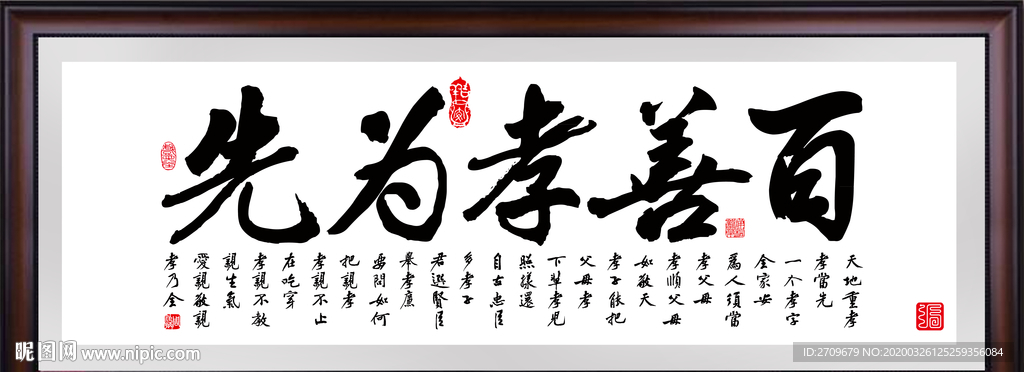 百善孝为先
天地重孝
孝當先
一个孝字
全家安
為人須當
孝父母
孝順父母
如敬天
孝子能把
父母孝
下輩孝兒
照樣還
自古忠臣
多孝子
君選賢臣
舉孝廉
要問如何
把親孝
孝親不止
在吃穿
孝親不教
親生氣
愛親敬親
孝乃全
昵图网 www.nipic.com
ID:2709679 NO:20200326125259356084